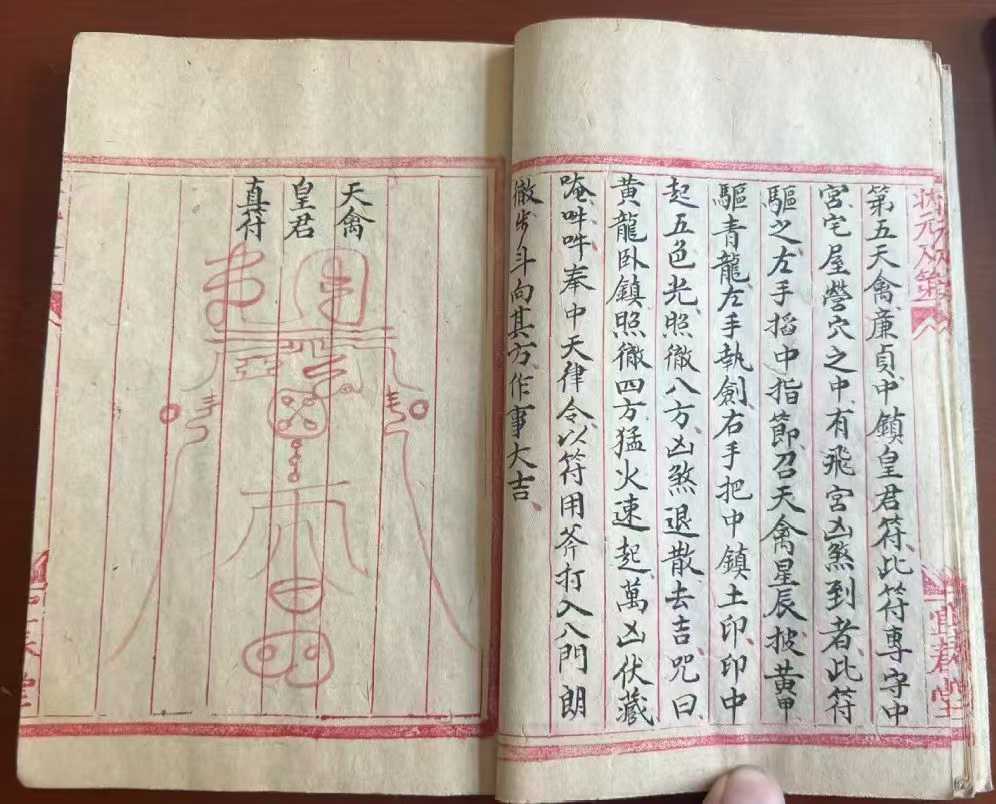 第五天禽廉貞中鎮皇君符、此符專守中
宮宅屋營穴之中、有飛宮凶煞到者、此符
驅之、左手掐中指節、召天禽星辰、披黃甲、
驅青龍、左手執劍、右手把中鎮土印、印中
起五色光、照徹八方、凶煞退散去吉、咒曰、
黃龍卧鎮、照徹四方、猛火速起、萬凶伏藏、
唵吽吽、奉中天律令、以符用斧打入八門、朗
徹步斗向其方、作事大吉、
天禽
皇君
真符